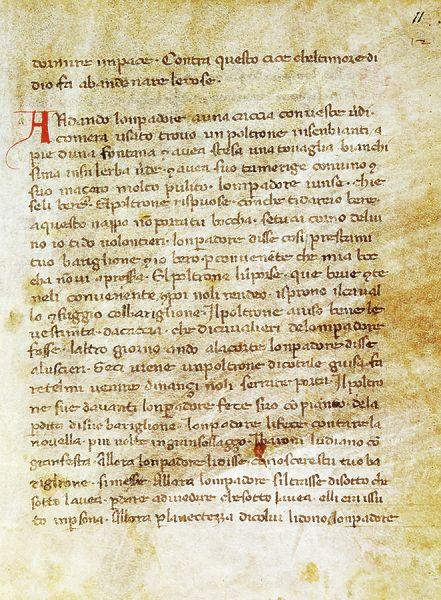 11
12
dormire in pace · Contra questo cice cheltimore di
dio fa abandonare le cose ·
a
ANdando lonpadore a una caccia con veste ūdi ·
comera usato trovo un poltrone in senbianti a
pie duna fontana ⁊ avea stesa una tovaglia bianchi
sima in su lerba ūde · ⁊ avea suo tamerige con vino ⁊
suo maçaro molto pulito · lonpadore iunse · chie
seli bere · El poltrone rispuose · con che ti dare io bere ·
a questo nappo non porai tu boccha · se tu ai corno del vi
no io ti do volontieri · lonpadore disse così prestami
tuo bariglione ⁊ io bero p convenēte che mia boc
cha nō vi apressa · El poltrone lil porse · que beve ⁊ te
neli convenente · ⁊ poi noli rendeo · isprono il caval
lo ⁊ fuggio col bariglione · Il poltrone aviso bene le
vestimta da caccia · che di cavalieri de lonpadore
fosse · laltro giorno ando a la corte lonpadore disse
a luscieri · se ci viene un poltrone di cotale guisa · fa
retelmi venire dināçi noli serrate porta · Il poltro
ne fue davanti lonpadore fece suo cōpianto · dela
pdita di suo bariglione · lonpadore li fece contare la
novella · piu volte in gran sollaçço · Ibaroni ludiano cō
gran festa · Allora lonpadore li disse · conosceresti tuo ba
riglione · si messe · Allora lonpadore sil trasse di sotto che
sotto lavea · p dare a divedere che sotto lavea · elli era issu
to in psona · Allora p la nectezza di colui li dono lonpadore